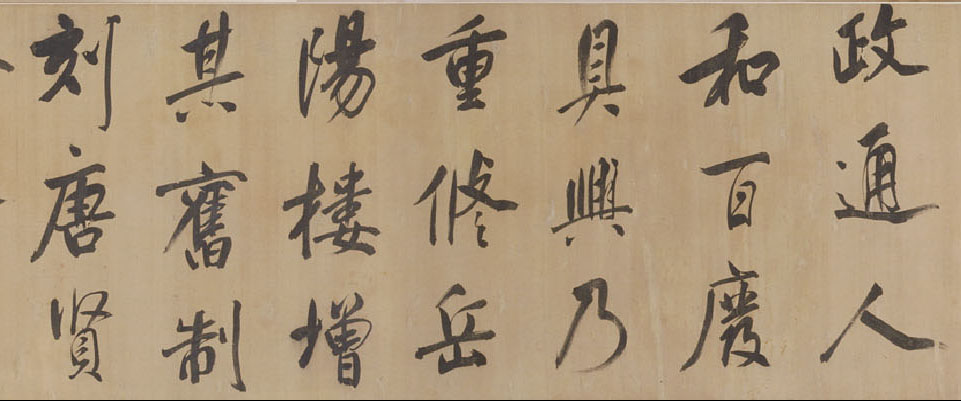 政通人
和百廢
具興乃
重修岳
陽樓增
其舊制
刻唐賢